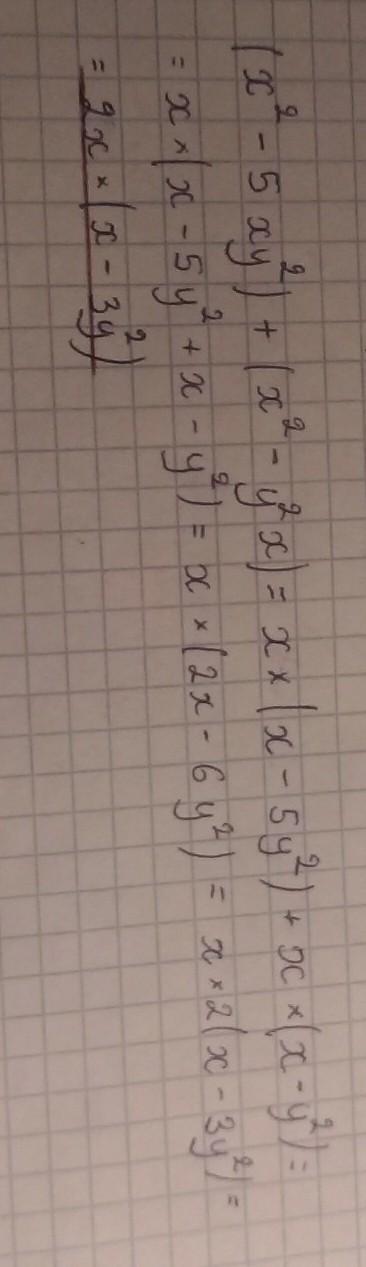 (x² - 5xy²) + (x² - y²x) = x × (x - 5y²) + x × (x - y²) =
= x × (x - 5y² + x - y²) = x × (2x - 6y²) = x × 2(x - 3y²) =
= 2x × (x - 3y²)